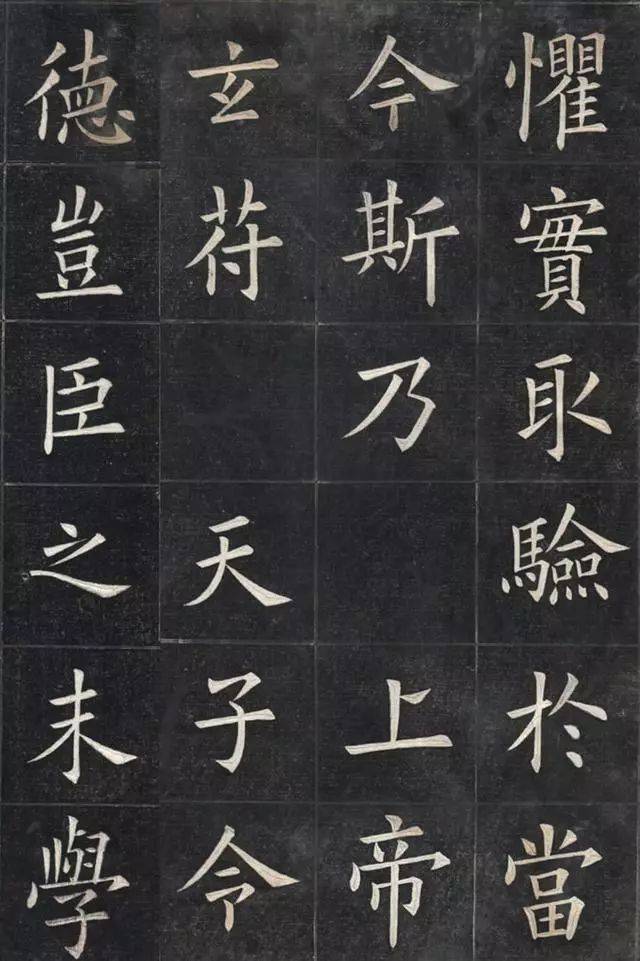 懼實取驗於當
今斯乃上帝
玄苻天子令
德豈臣之末學